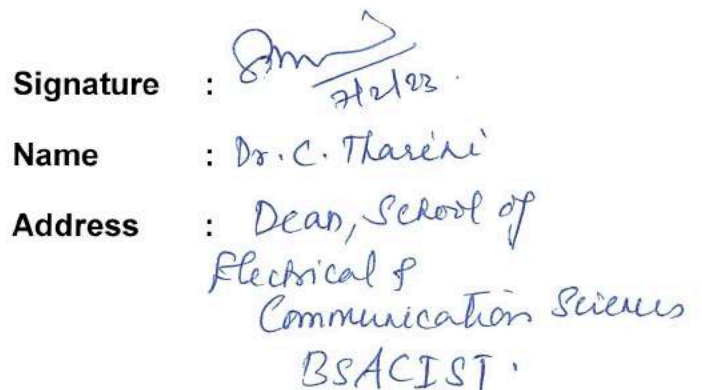 Signature :
7/2/23.
Name : Dr. C. Tharini
Address : Dean, School of
Electrical &
Communication Sciences
BSACIST.